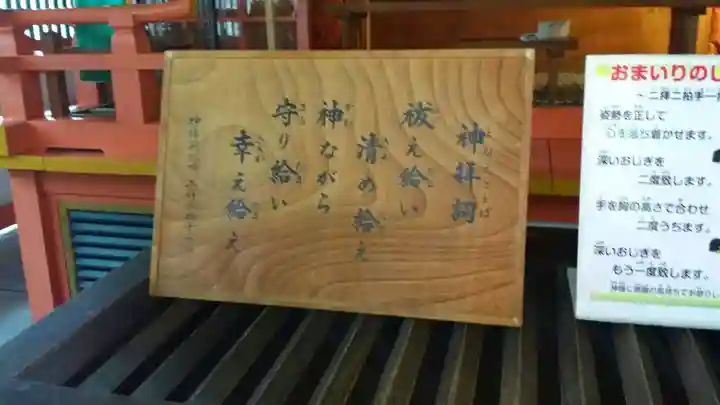 神拝詞
祓え給い
清め給え
神ながら
守り給い
幸え給え
おまいりのし
～二拝二拍手一
姿勢を正して
心を落ち着かせます。
深いおじぎを
二度致します。
手を胸の高さで合わせ
二度うちます。
深いおじぎを
もう一度致します。